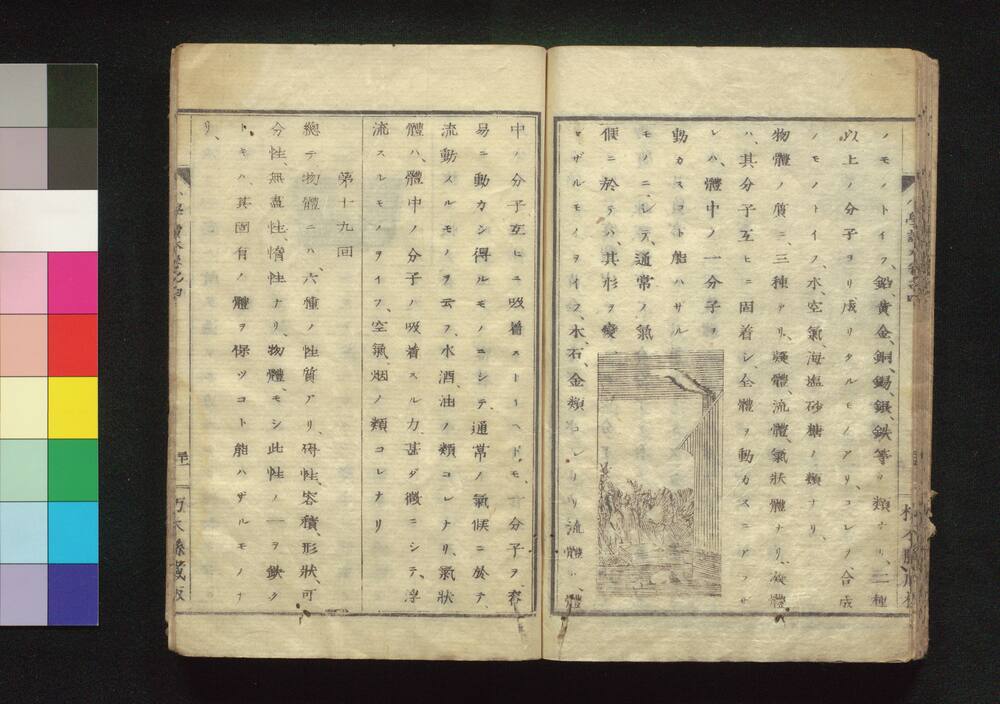 ノモノトイフ、鉛、黄金、銅、錫、銀、鉄等ノ類ナリ、二種
以上ノ分子ヨリ成リタルモノアリ、コレヲ合成
ノモノトイフ、水、空氣、海塩、砂糖ノ類ナリ、
物體ノ質ニ、三種アリ、凝體、流體、氣狀體ナリ、凝體
ハ、其分子互ヒニ固着シ、全體ヲ動カスニアラサ
レハ、體中ノ一分子ヲ
動カスコト能ハサル
モノニシテ、通常ノ氣
候ニ於テハ、其形ヲ變
セザルモノヲイフ、木、石、金類コレナリ、流體ハ、體
中ノ分子互ヒニ吸着ストイヘドモ、分子ヲ、容
易ニ動カシ得ルモノニシテ、通常ノ氣候ニ於テ、
流動スルモノヲ云フ、水、酒、油ノ類コレナリ、氣狀
體ハ、體中ノ分子ノ吸着スル力、甚ダ微ニシテ、浮
流スルモノヲイフ、空氣、烟ノ類コレナリ
第十九回
總テ物體ニハ、六種ノ性質アリ、碍性、容積、形狀、可
分性、無盡性、惰性ナリ、物體、モシ此性ノ一ヲ欽ク
トキハ、其固有ノ體ヲ保ツコト能ハザルモノナ
リ、